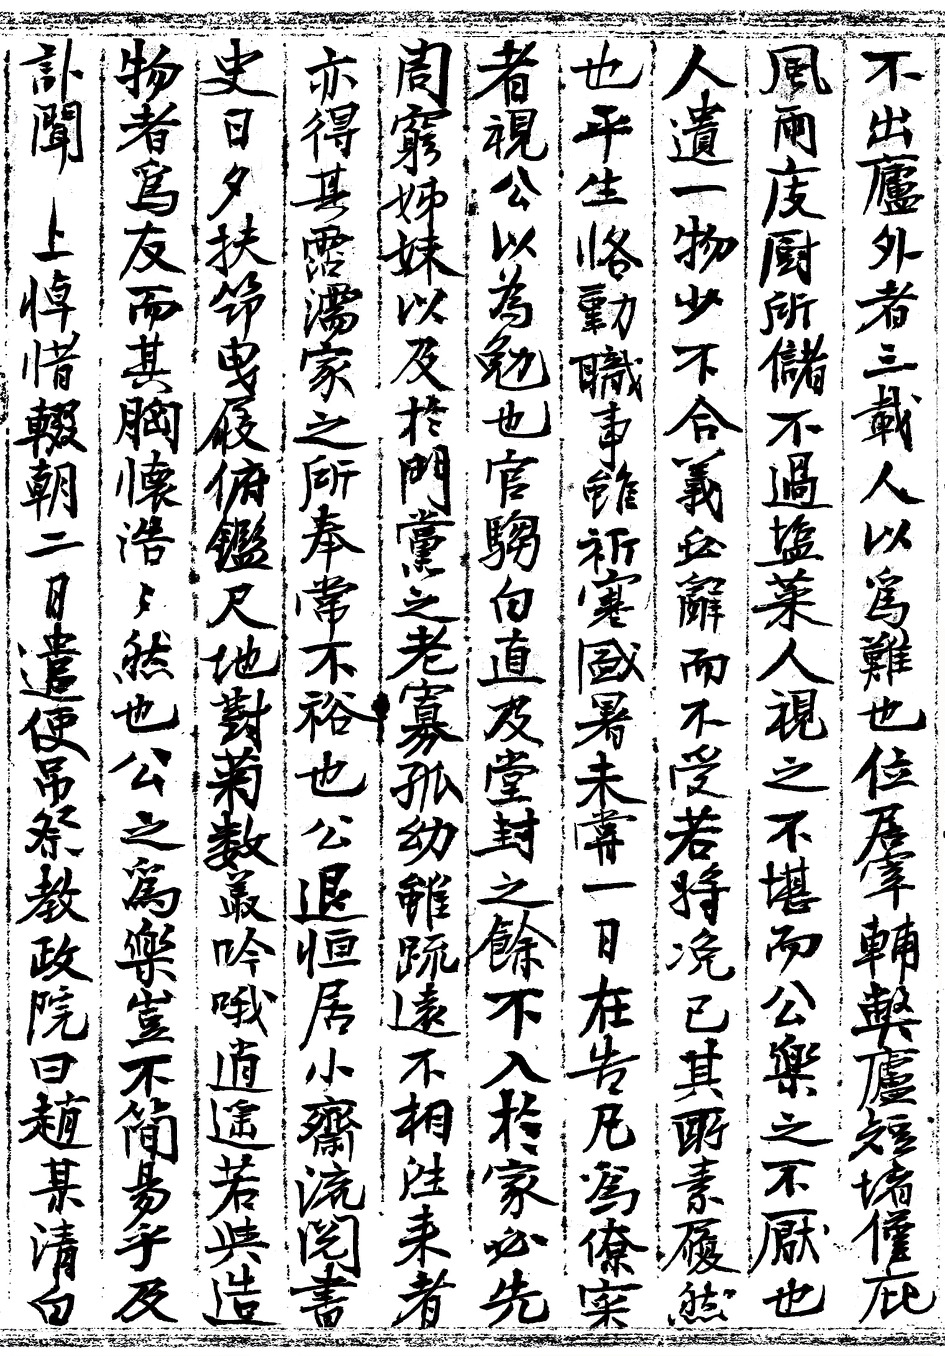 不出廬外者三載人以爲難也位居宰輔弊廬短墻僅庇
風雨庋厨所儲不過塩菜人視之不堪而公樂之不厭也
人遺一物少不合義必辭而不受若將凂已其所素履然
也平生恪勤職事雖祈寒盛暑未嘗一日在告凡爲僚寀
者視公以為勉也官騶白直及堂封之餘不入於家必先
周窮姊妹以及於門黨之老寡孤幼雖疏遠不相往来者
亦得其霑濡家之所奉常不裕也公退恒居小齋流閱書
史日夕扶筇曳屐俯鑑尺地對菊数叢吟哦逍遥若與造
物者爲友而其胸懷浩〻然也公之爲樂豈不简易乎及
訃聞 上悼惜輟朝二日遣使吊祭教政院曰趙某清白